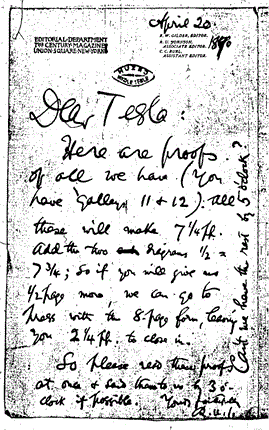 April 20
1890
EDITORIAL DEPARTMENT
THE CENTURY MAGAZINE
UNION SQUARE NEW YORK
R. W. GILDER, EDITOR.
R. U. JOHNSON,
ASSOCIATE EDITOR.
C. C. BUEL,
ASSISTANT EDITOR.
Dear Tesla:
Here are proofs
of all we have (You
have galleys 11 & 12). All
these will make 7 1/4 pp.
Add the two diagrams 1/2 =
7 3/4; so if you will give us
1/2 page more, we can go to
press with the 8-page form, leaving
you 2 1/4 pp. to close in.
So please read these proofs
at once & send them to us by 3 o'-
clock if possible.
Yours faithfully
R. U. J.
Can't we have the rest by 5 o'clock?